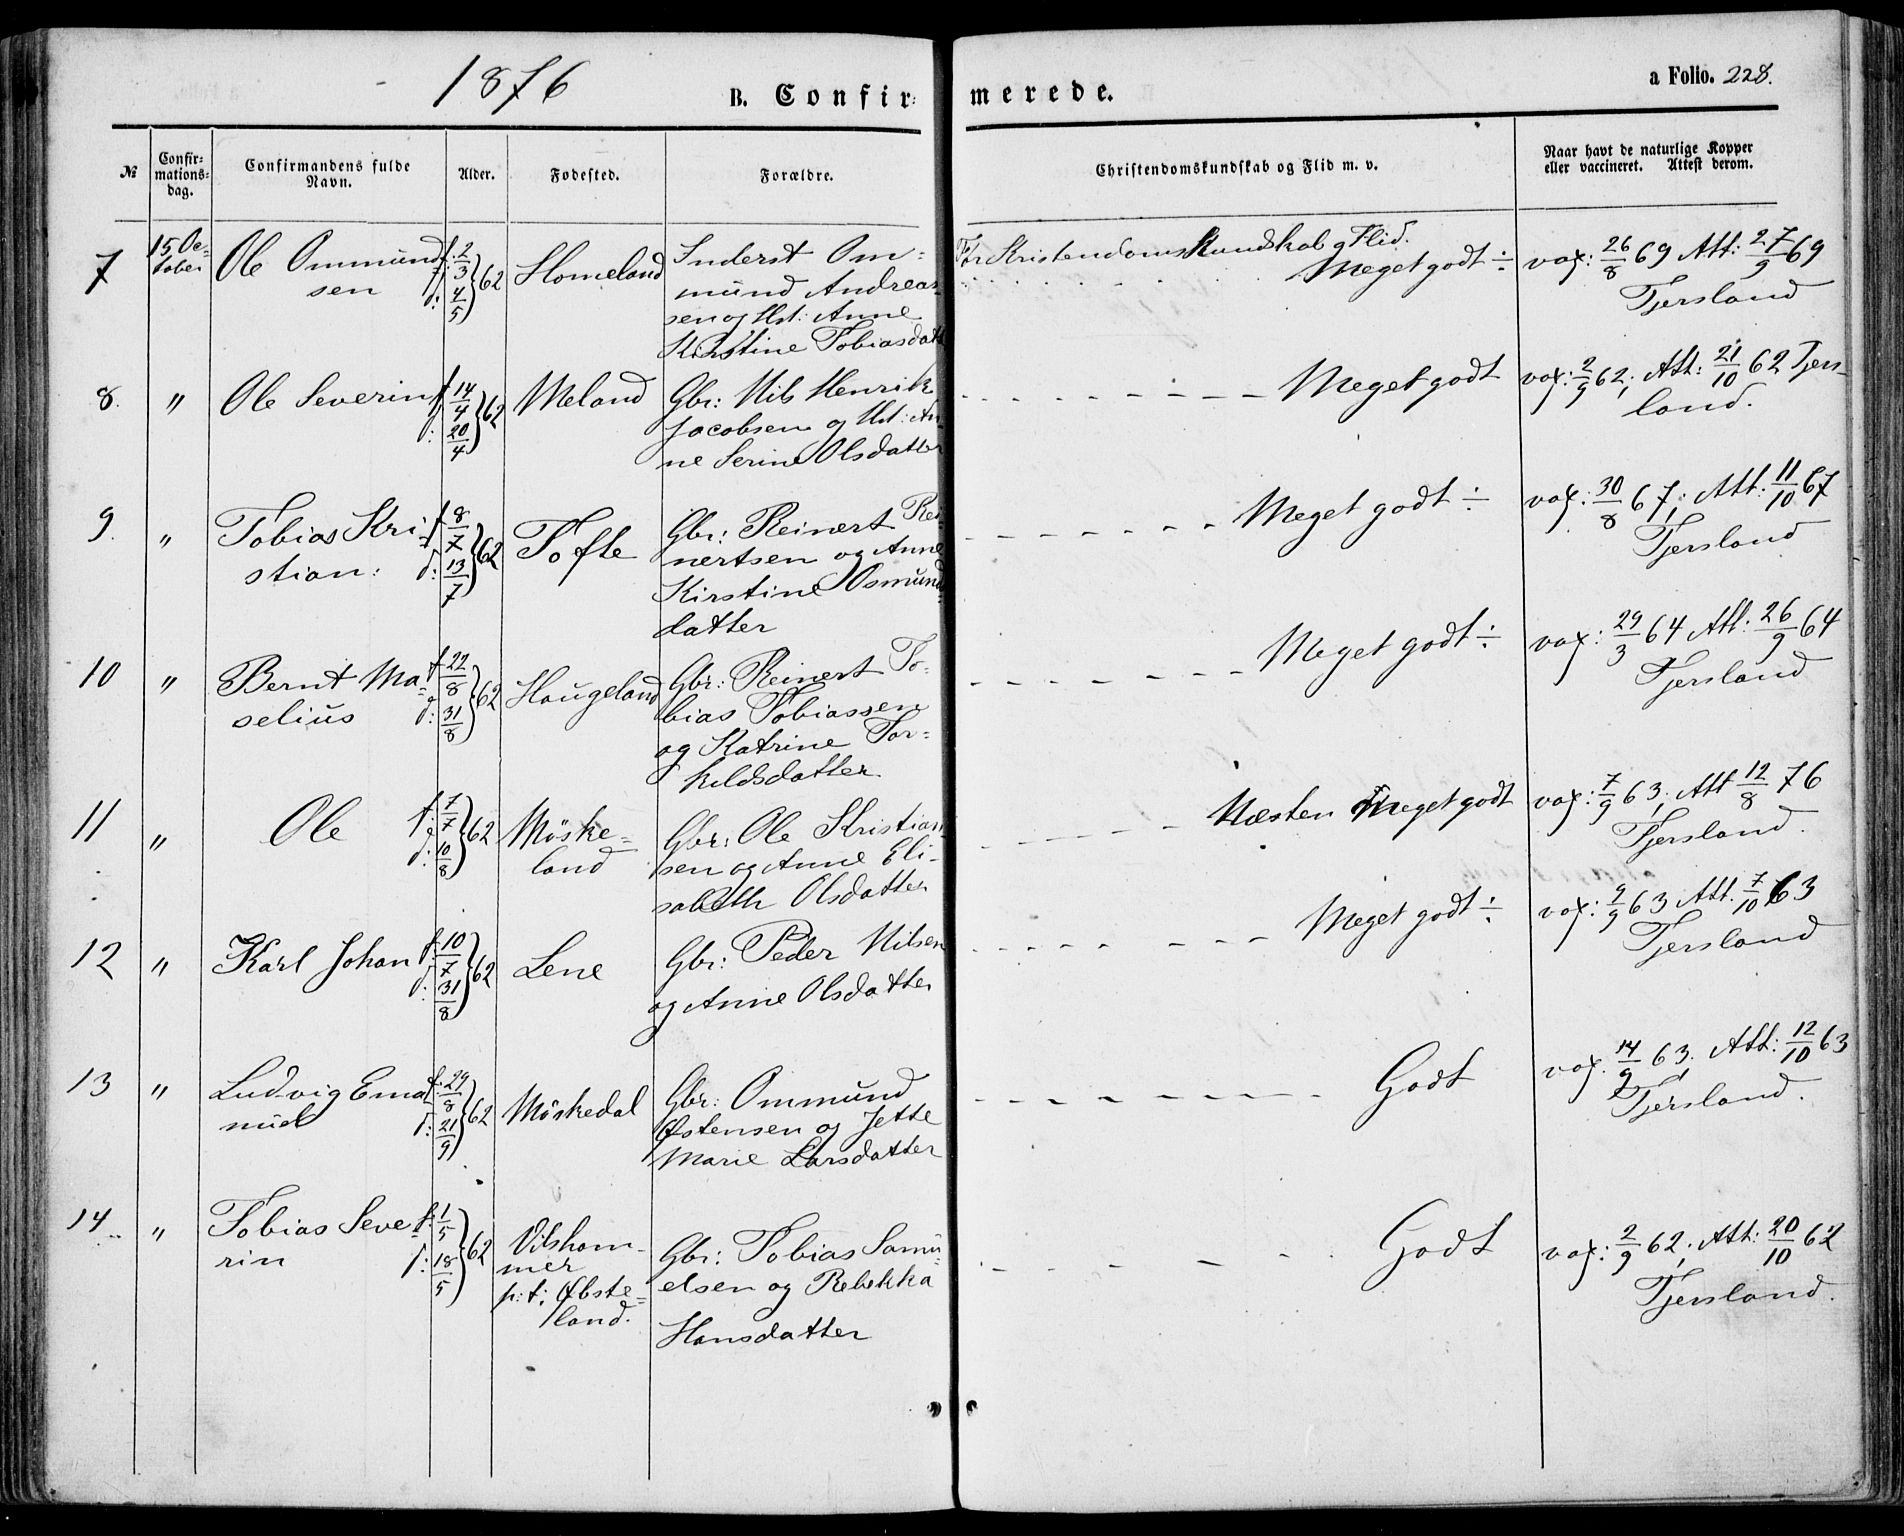 1876
B. Confir=
merede.
a Folio. 228.
№
Confir=
mations=
dag.
Confirmandens fulde
Navn.
Alder.
Fødested.
Forældre.
Christendomskundskab og Flid m. v.
Naar havt de naturlige Kopper
eller vaccineret. Attest derom.
7
15 Oc=
tober
Ole Ommund
sen
f. 2/3
d: 4/5 } 62
Homeland
Inderst Om=
mund Andreas=
sen og Hst: Anne
Kirstine Tobiasdatt
For Kristendoms Kundskab og Flid.
Meget godt ÷
vax: 26/8 69 Att: 27/9 69
Tjersland
8.
"
Ole Severin
f 14/4
d: 20/4 } 62
Meland
Gbr: Nils Henrik
Jacobsen og Hst: An=
ne Serine Olsdatter
Meget godt
vax: 2/9 62; Att: 21/10 62 Tjers-
land.
9.
"
Tobias Kri=
stian:
f. 8/7
d: 13/7 } 62
Tofte
Gbr: Reinert Rei=
nertsen og Anne
Kirstine Osmund=
datter
Meget godt ÷
vax: 30/8 67; Att: 11/10 67
Tjersland
10
"
Bernt Ma=
selius
f. 22/8
d: 31/8 } 62
Haugeland
Gbr: Reinert To=
bias Tobiassen
og Katrine Tor=
kildsdatter
Meget godt ÷
vax: 29/3 64 Att: 26/9 64
Tjersland
11
"
Ole
f: 7/7
d: 10/8 } 62
Möske=
land
Gbr: Ole Kristian
sen og Anne Eli=
sabeth Olsdatter
Næsten Meget godt
vax: 7/9 63; Att 12/8 76
Tjersland.
12
"
Karl Johan
f. 10/7
d: 31/8 } 62
Lene
Gbr: Peder Nilsen
og Anne Olsdatter
Meget godt ÷
vax: 9/9 63 Att. 7/10 63
Tjersland
13
"
Ludvig Ema
nuel
f: 29/8
d: 21/9 } 62
Möskedal
Gbr: Ommund
Østensen og Jette
Marie Larsdatter
Godt
vax. 14/9 63; Att: 12/10 63
Tjersland.
14
"
Tobias Seve=
rin
f: 1/5
d: 18/5 } 62
Vilsham-
mer
p:t: Øbste=
land.
Gbr: Tobias Samu=
elsen og Rebekka
Hansdatter
Godt
vax: 2/9 62; Att: 20/10 62
Tjersland.